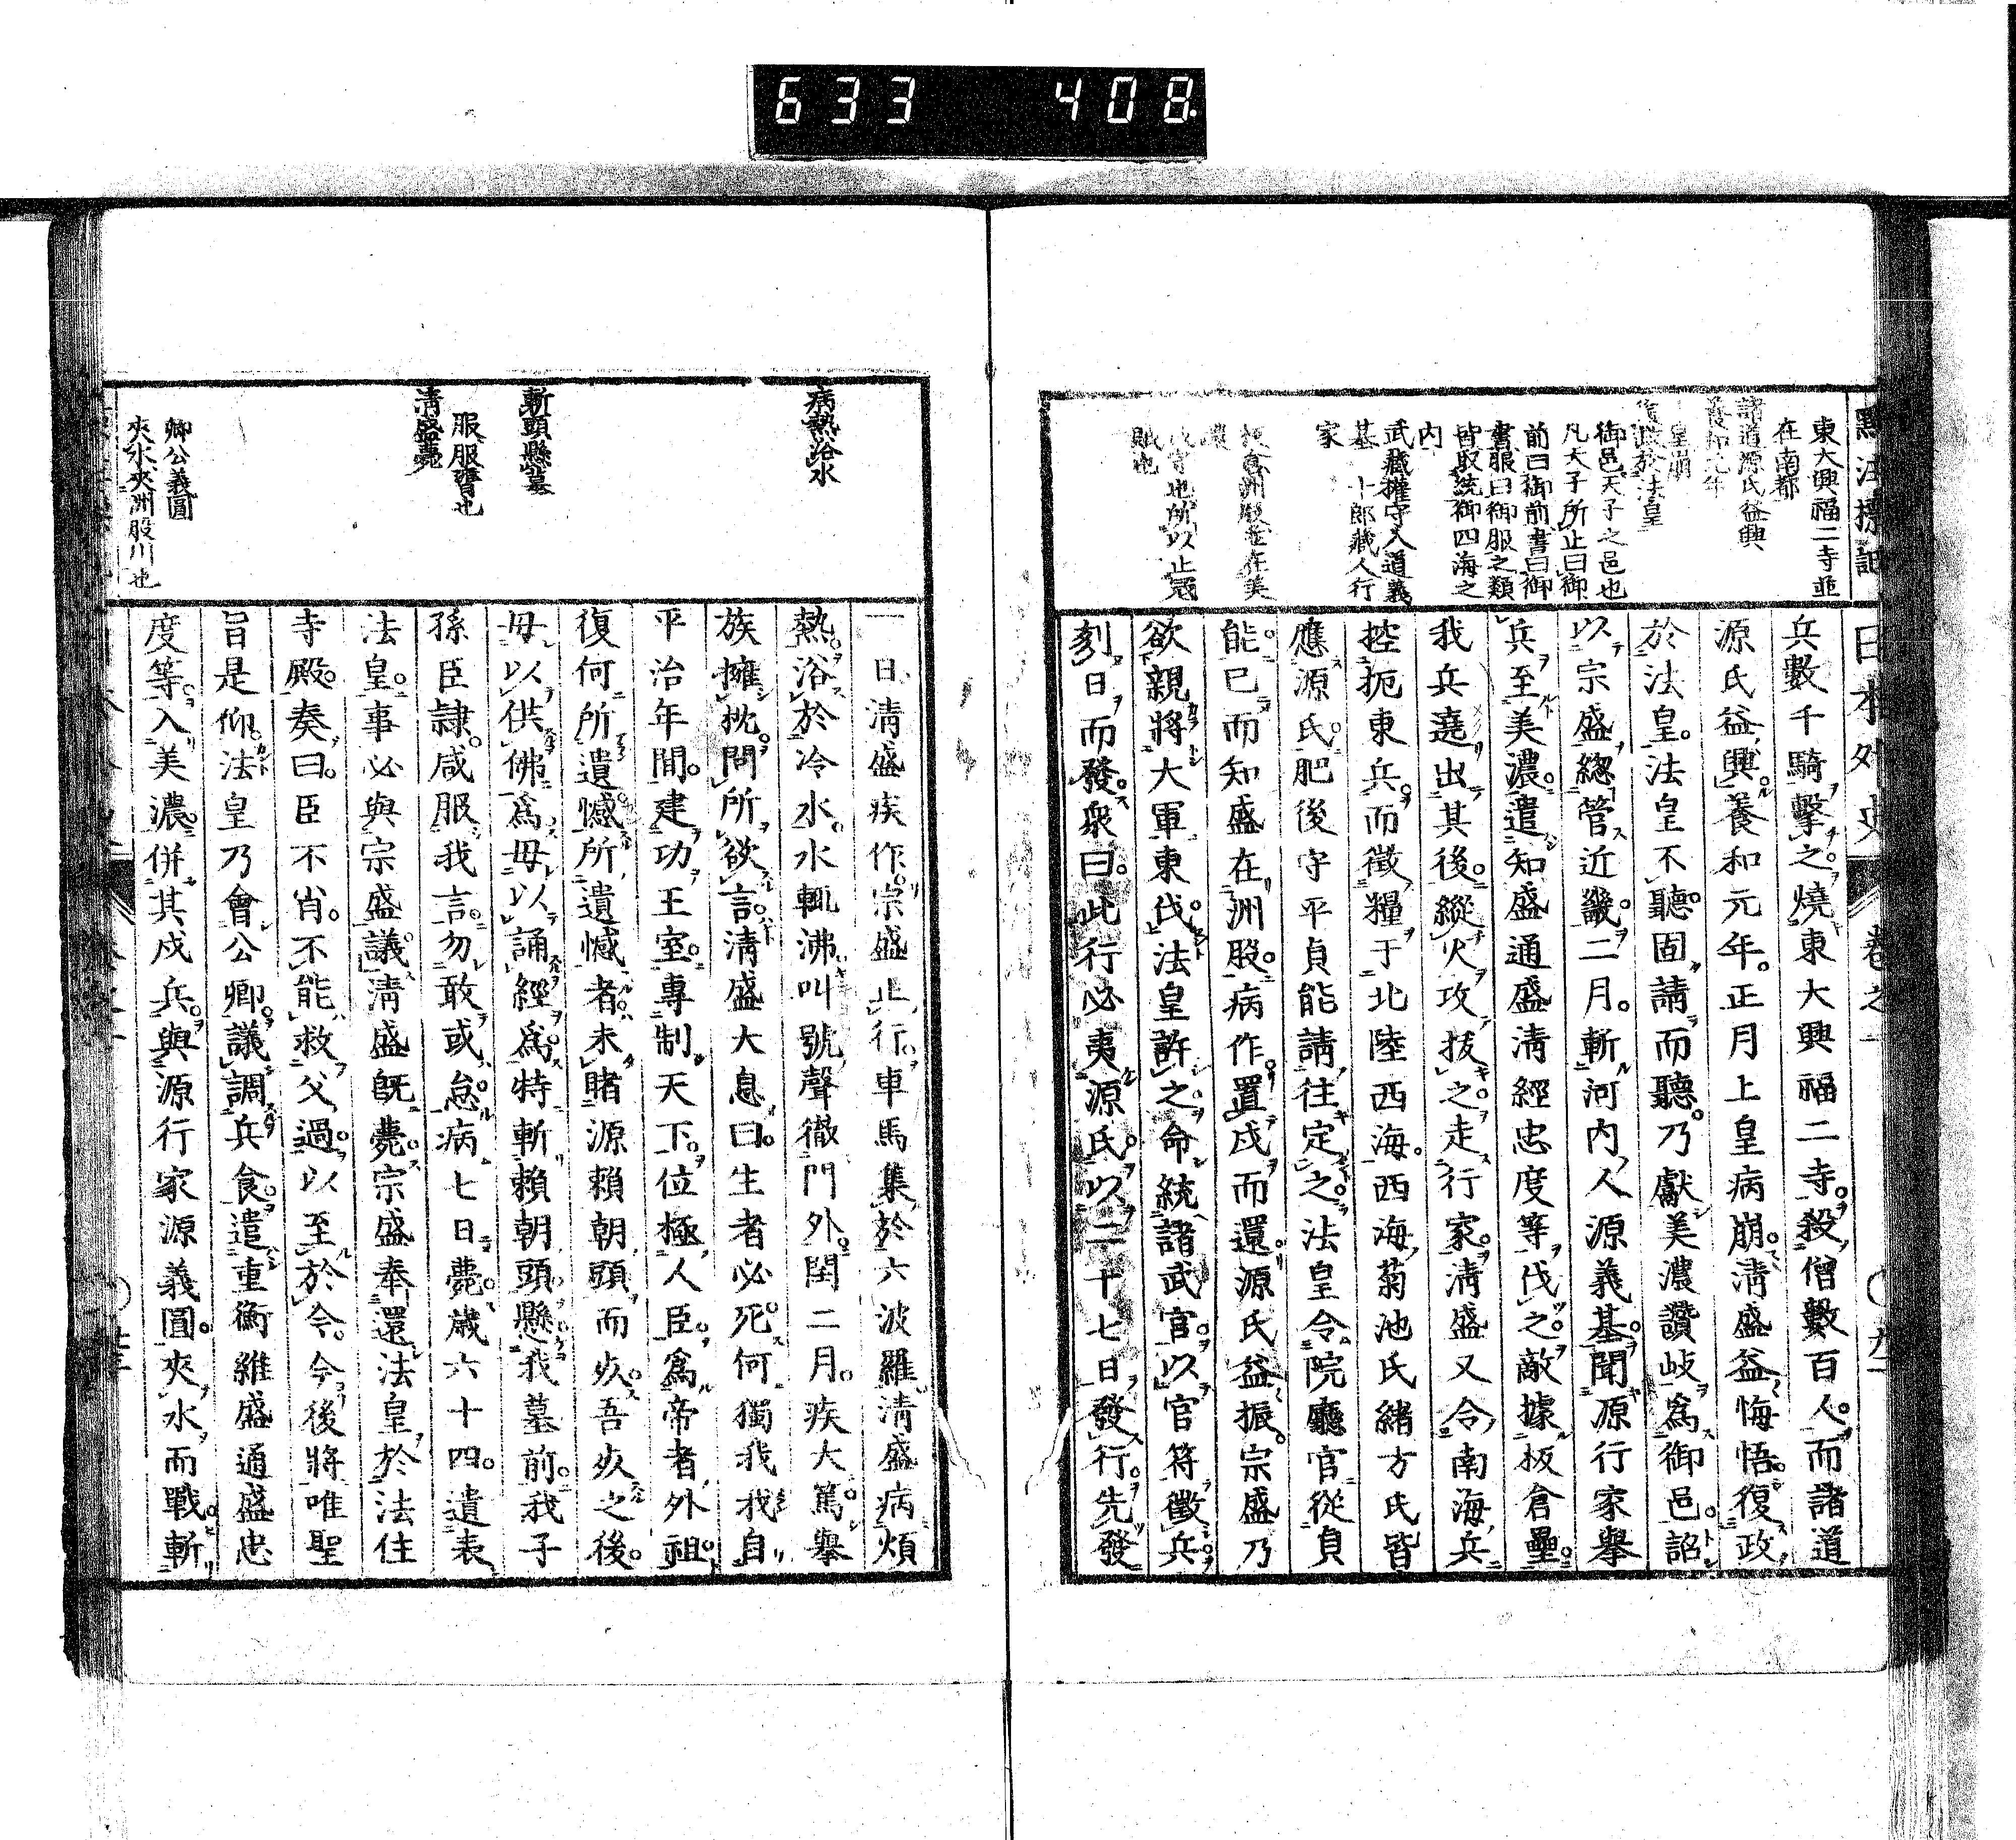 633 408
日本外史 卷之一
東大興福二寺並
在南都
諸道源氏益興
養和元年
皇崩
復政於法皇
御邑天子之邑也
凡天子所止曰御
前曰御前書曰御
書服曰御服之類
皆取統御四海之
内
武藏權守入道義
基 十郎藏人行
家
板倉洲股並在美
濃
戍守也所以止寇
賊也
兵數千騎擊之燒東大興福二寺殺僧數百人而諸道
源氏益興養和元年正月上皇病崩淸盛益悔悟復政
於法皇法皇不聽固請而聽乃獻美濃讚岐爲御邑詔
以宗盛總管近畿二月斬河内人源義基聞源行家擧
兵至美濃遣知盛通盛淸經忠度等伐之敵據板倉壘
我兵遶出其後縱火攻拔之走行家淸盛又令南海兵
控扼東兵而徵糧于北陸西海西海菊池氏緒方氏皆
應源氏肥後守平貞能請往定之法皇令院廳官從貞
能已而知盛在洲股病作置戍而還源氏益振宗盛乃
欲親將大軍東伐法皇許之命統諸武官以官符徵兵
刻日而發衆曰此行必夷源氏以二十七日發行先發
病熱浴水
斬頭懸墓
服服膺也
淸盛薨
卿公義圓
夾水夾洲股川也
一日淸盛疾作宗盛止行車馬集於六波羅淸盛病煩
熱浴於冷水水輒沸叫號聲徹門外閏二月疾大篤擧
族擁枕問所欲言淸盛大息曰生者必死何獨我我自
平治年間建功王室專制天下位極人臣爲帝者外祖
復何所遺憾所遺憾者未睹源賴朝頭而死吾死之後
毋以供佛爲毋以誦經爲特斬賴朝頭懸我墓前我子
孫臣隷咸服我言勿敢或怠病七日薨歲六十四遺表
法皇事必與宗盛議淸盛既薨宗盛奉還法皇於法住
寺殿奏曰臣不肖不能救父過以至於今今後將唯聖
旨是仰法皇乃會公卿議調兵食遣重衡維盛通盛忠
度等入美濃併其戍兵與源行家源義圓夾水而戰斬